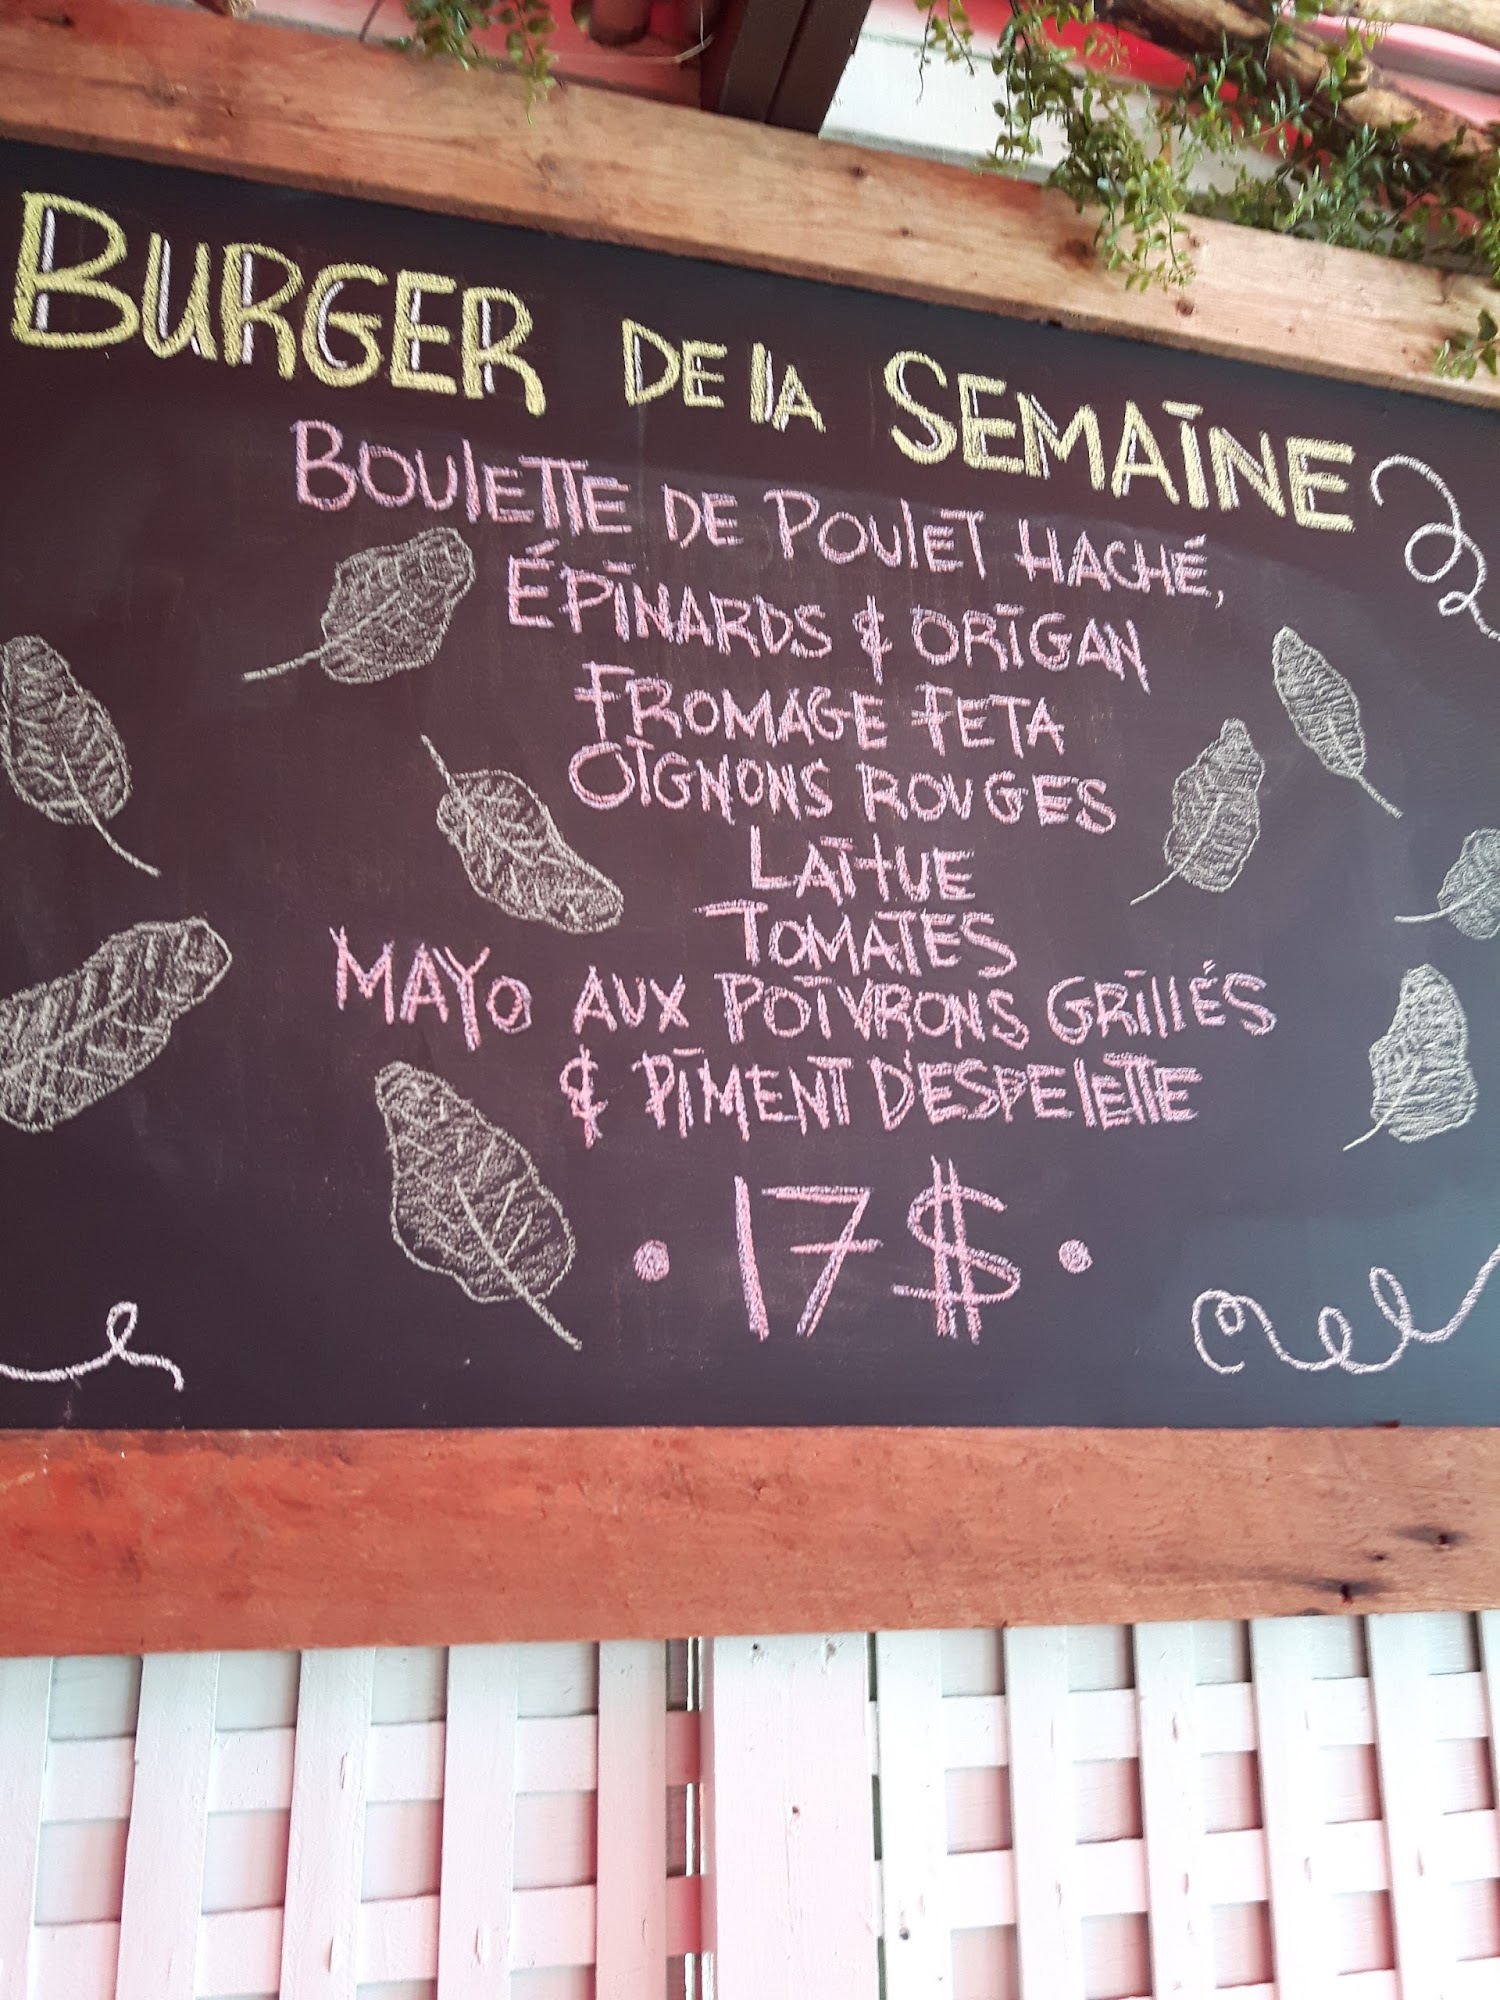 BURGER DE LA SEMAINE
BOULETTE DE POULET HACHÉ,
ÉPINARDS & ORIGAN
FROMAGE FETA
OIGNONS ROUGES
LAITUE
TOMATES
MAYO AUX POIVRONS GRILLÉS
& PIMENT D'ESPELETTE
• 17 $ •